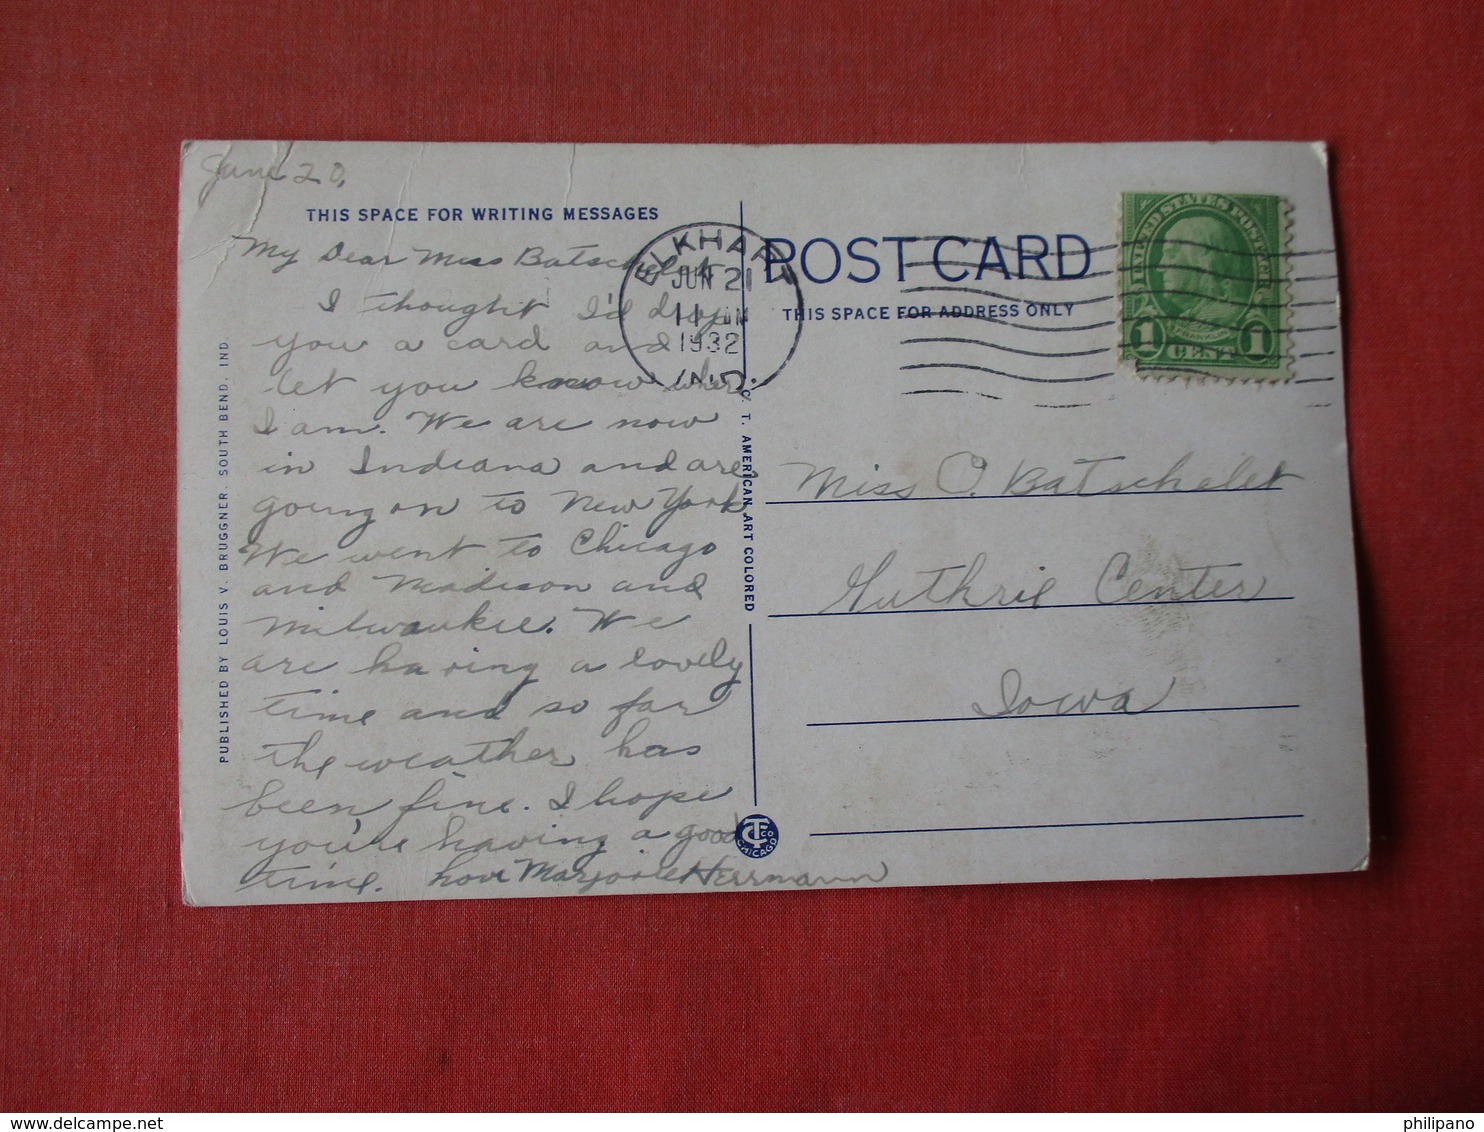 June 20,
THIS SPACE FOR WRITING MESSAGES
My Dear Miss Batschelet
I thought I'd drop
you a card and
let you know where
I am. We are now
in Indiana and are
going on to New York
We went to Chicago
and Madison and
Milwaukee. We
are having a lovely
time and so far
the weather has
been fine. I hope
you're having a good
time. Love Marjorie Herrmann
PUBLISHED BY LOUIS V. BRUGGNER, SOUTH BEND, IND.
C. T. AMERICAN ART COLORED
CT CO
CHICAGO
ELKHART
JUN 21
11 AM
1932
IND.
POST CARD
THIS SPACE FOR ADDRESS ONLY
UNITED STATES POSTAGE
FRANKLIN
1 CENT 1
Miss O. Batschelet
Guthrie Center
Iowa
delcampe.net
philipano